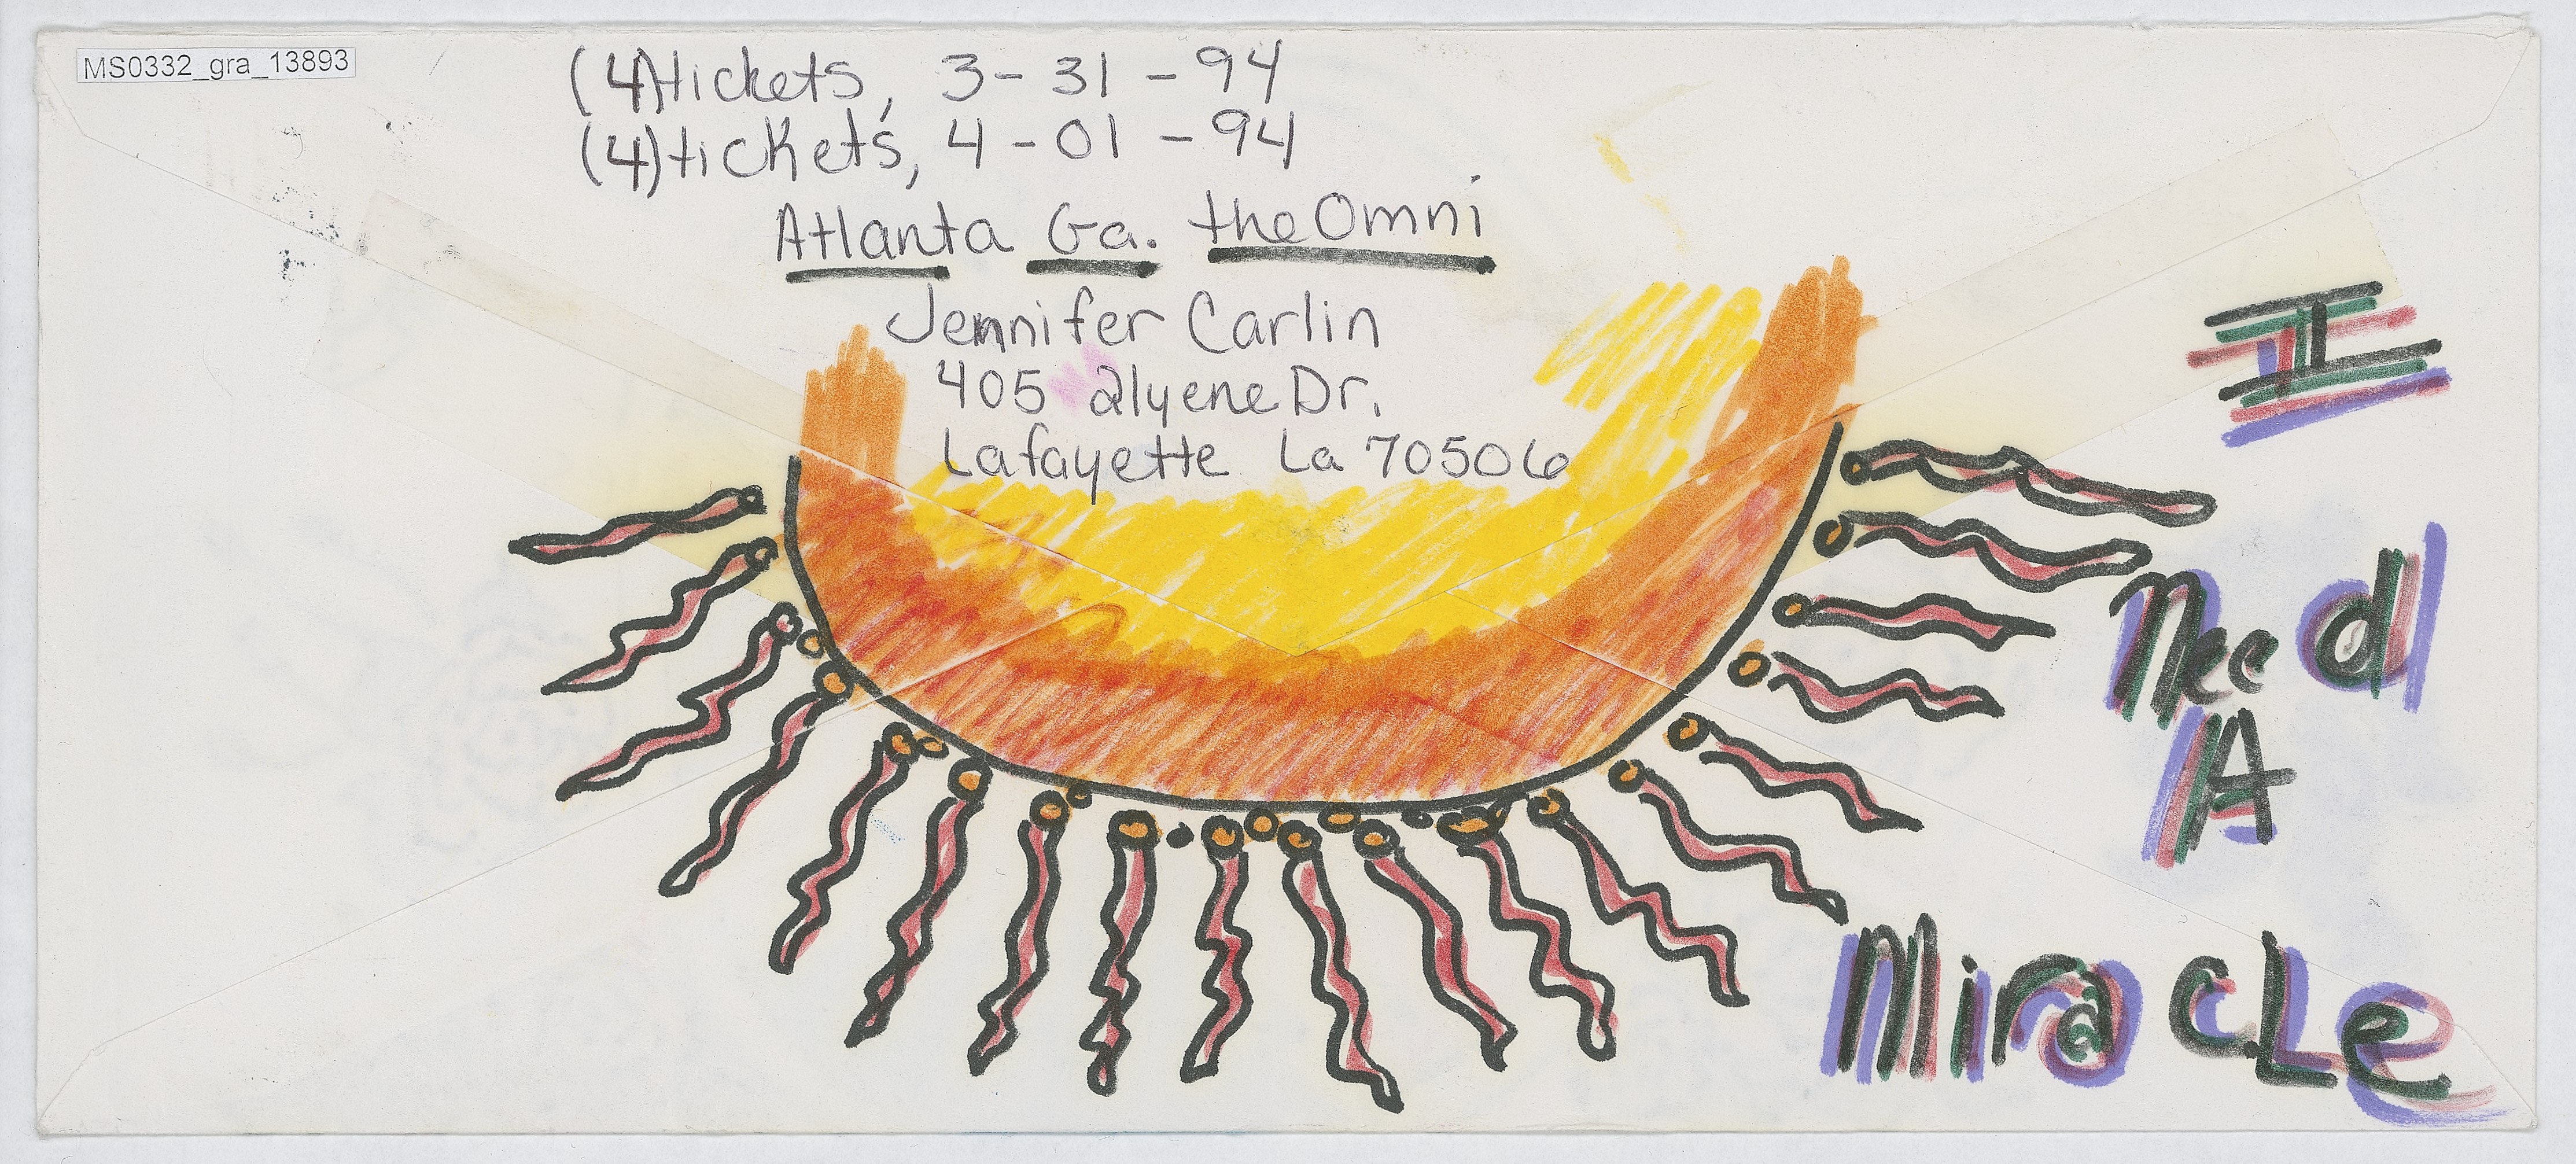 MS0332_gra_13893
(4) tickets, 3-31-94
(4) tickets, 4-01-94
Atlanta Ga. the Omni
Jennifer Carlin
405 alyene Dr.
Lafayette La 70506
I
Need
A
MiracLe